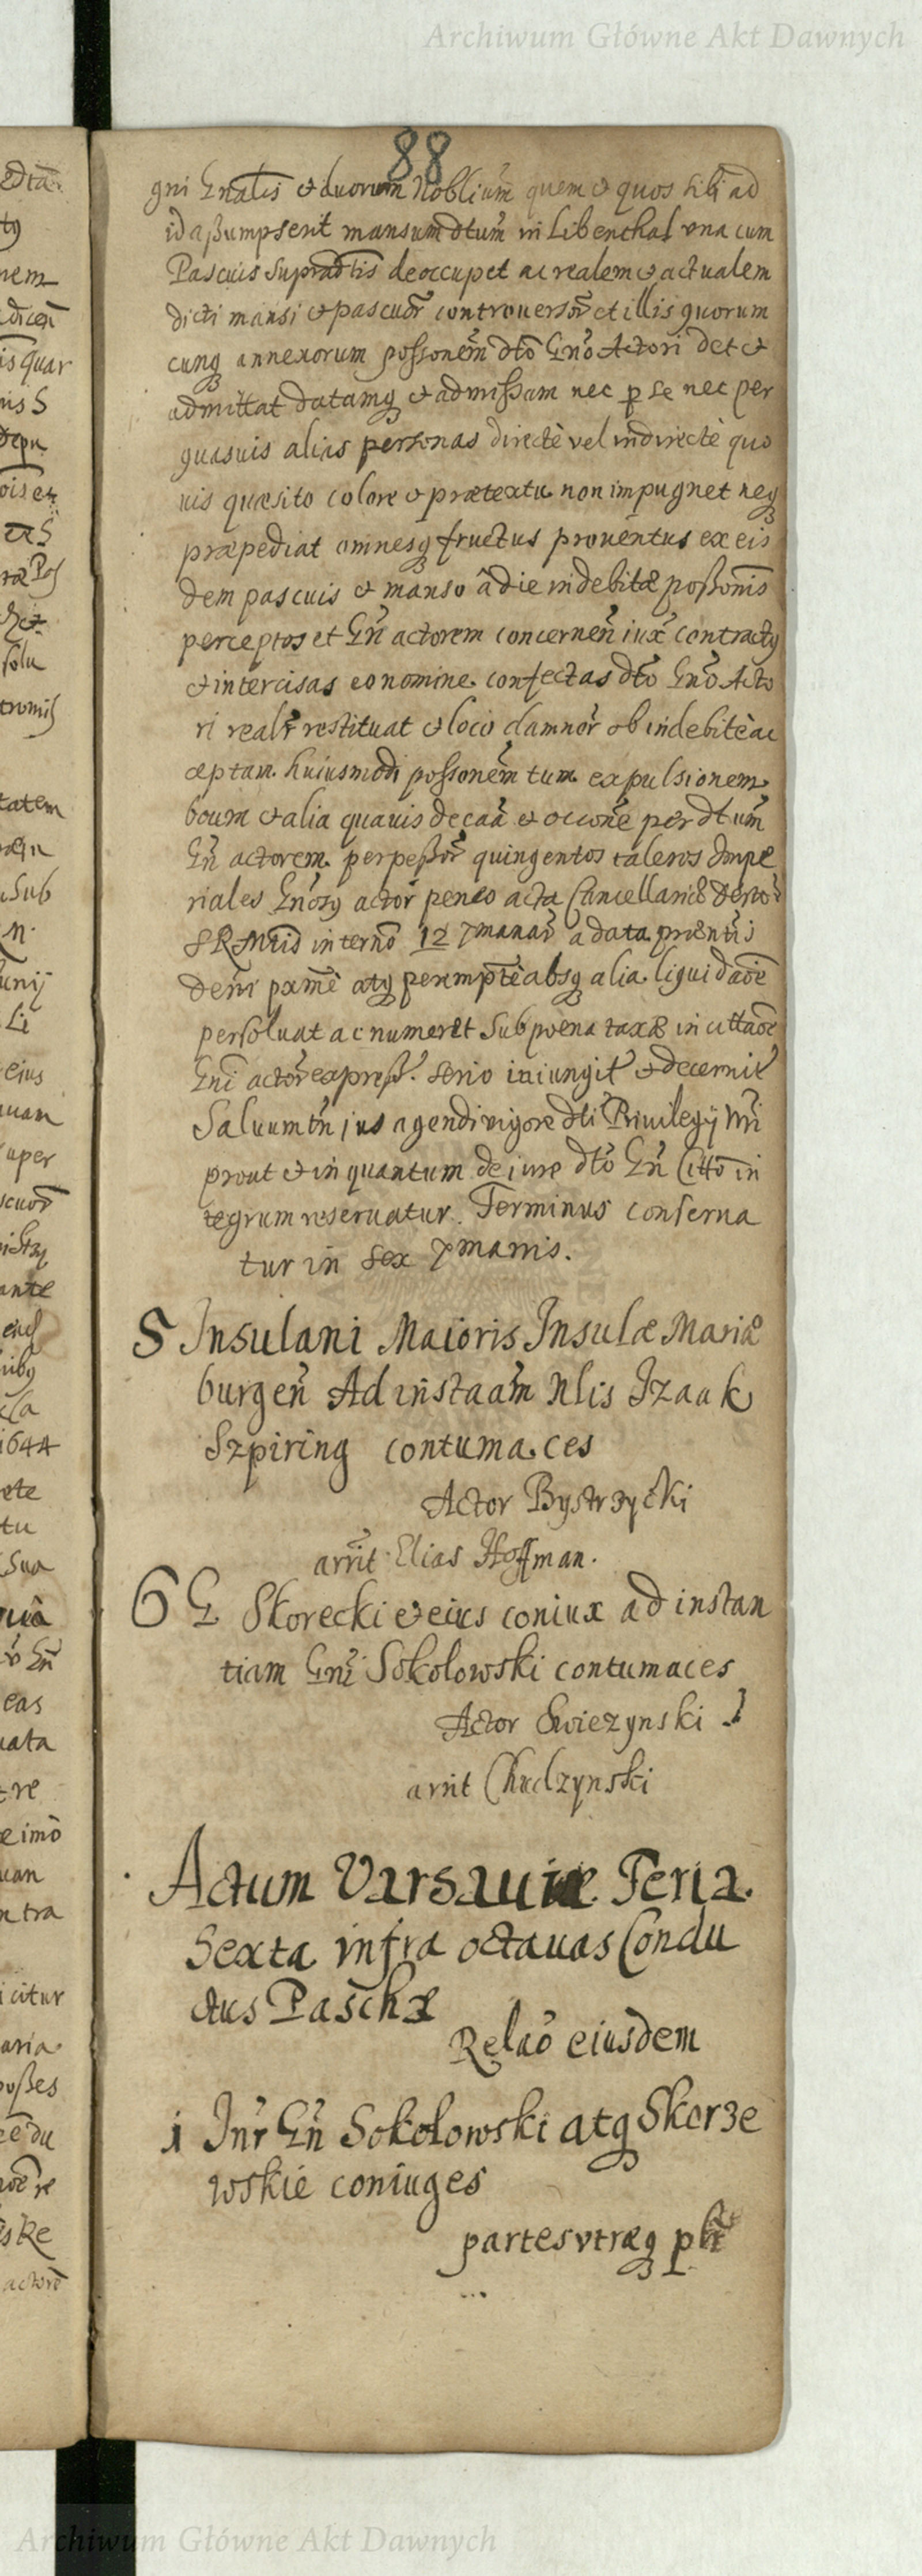 Archiwum Główne Akt Dawnych
88
gni Gnalis & duorum Noblium quem & quos sibi ad
id aßumpserit mansum dtum in Libenthal una cum
Pascuis supradtis deoccupet ac realem & actualem
dicti mansi & pascuor controuersor et illis quorum
cunq annexorum possonem dto Gno Actori det &
admittat datamq & admissam nec p se nec per
quasuis alias personas directè vel indirectè quo
uis quæsito colore & prætextu non impugnet neq
præpediat omnesq fructus prouentus ex eis
dem pascuis & manso â die indebitæ poßonis
perceptos et Gn actorem concernen iux contractq
& intercisas eo nomine confectas dto Gno Acto
ri realr restituat & loco damnor ob indebitè ac
ceptam huiusmodi possonem tum expulsionem
boum & alia quauis de caa & occone per dtum
Gn actorem perpeßor quingentos taleros Impe
riales Gnosq actor penes acta Cancellariæ
SRMtis in terno 12 7manar a data prientis
deni pxme atq peremptè absq alia liquidaoe
persoluat ac numeret sub poena taxæ in cittaoe
Gni actor expreß. serio iniungit & decernit
Saluum tn ius agendi vigore dti Priuilegij
prout & in quantum de iure dto Gn Citto in
tegrum reseruatur. Terminus conserua
tur in sex 7manis.
5 Insulani Maioris Insulæ Mariæ
burgen Ad instaam Nlis Izaak
Szpiring contumaces
Actor Bystrzycki
arrit Elias Hoffman.
6 G Skorecki & eius coniux ad instan
tiam Gni Sokolowski contumaces
Actor Swiezynski
arrit Chudzynski
Actum Varsauiæ Feria
Sexta infra octauas Condu
ctus Paschæ
Relao eiusdem
1 Inr Gn Sokolowski atq Skorze
wskie coniuges
partes vtræq
Archiwum Główne Akt Dawnych